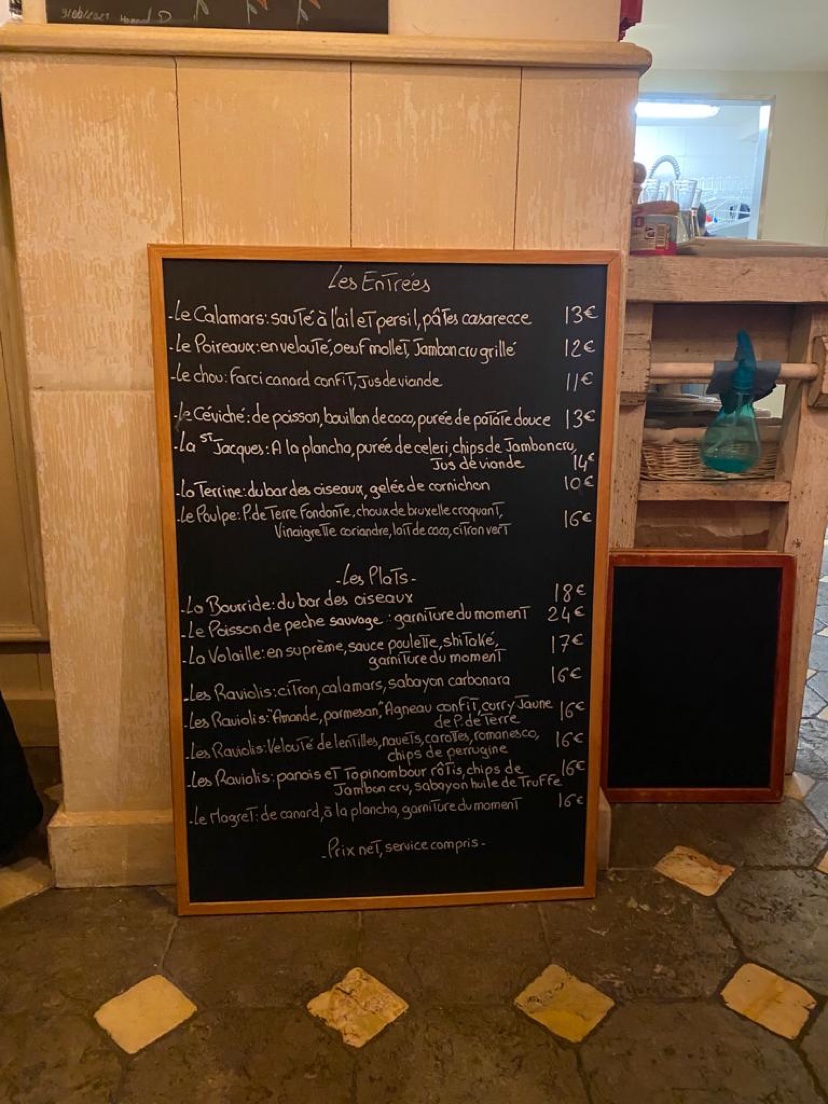 9/06/2021 Hoond D
Les Entrées
-Le Calamars: sauté à l'ail et persil, pâtes casarecce 13€
-Le Poireaux: en velouté, oeuf mollet, Jambon cru grillé 12€
-Le chou: Farci canard confit, Jus de viande 11€
-Le Céviché: de poisson, bouillon de coco, purée de patate douce 13€
-La St Jacques: A la plancha, purée de celeri, chips de Jambon cru,
Jus de viande 14€
-La Terrine: du bar des oiseaux, gelée de cornichon 10€
-Le Poulpe: P. de Terre Fondante, choux de bruxelle croquant, 16€
Vinaigrette coriandre, lait de coco, citron vert
-Les Plats-
-La Bourride: du bar des oiseaux 18€
-Le Poisson de peche sauvage: garniture du moment 24€
-La Volaille: en suprème, sauce poulette, shitaké, 17€
garniture du moment
-Les Raviolis: citron, calamars, sabayon carbonara 16€
-Les Raviolis: "Amande, parmesan," Agneau confit, curry Jaune 16€
de P. de Terre
-Les Raviolis: Velouté de lentilles, navets, carotes, romanesco, 16€
chips de perrugine
-Les Raviolis: panais et Topinambour rôtis, chips de 16€
Jambon cru, sabayon huile de Truffe
-Le Magret: de canard, à la plancha, garniture du moment 16€
-Prix net, service compris-